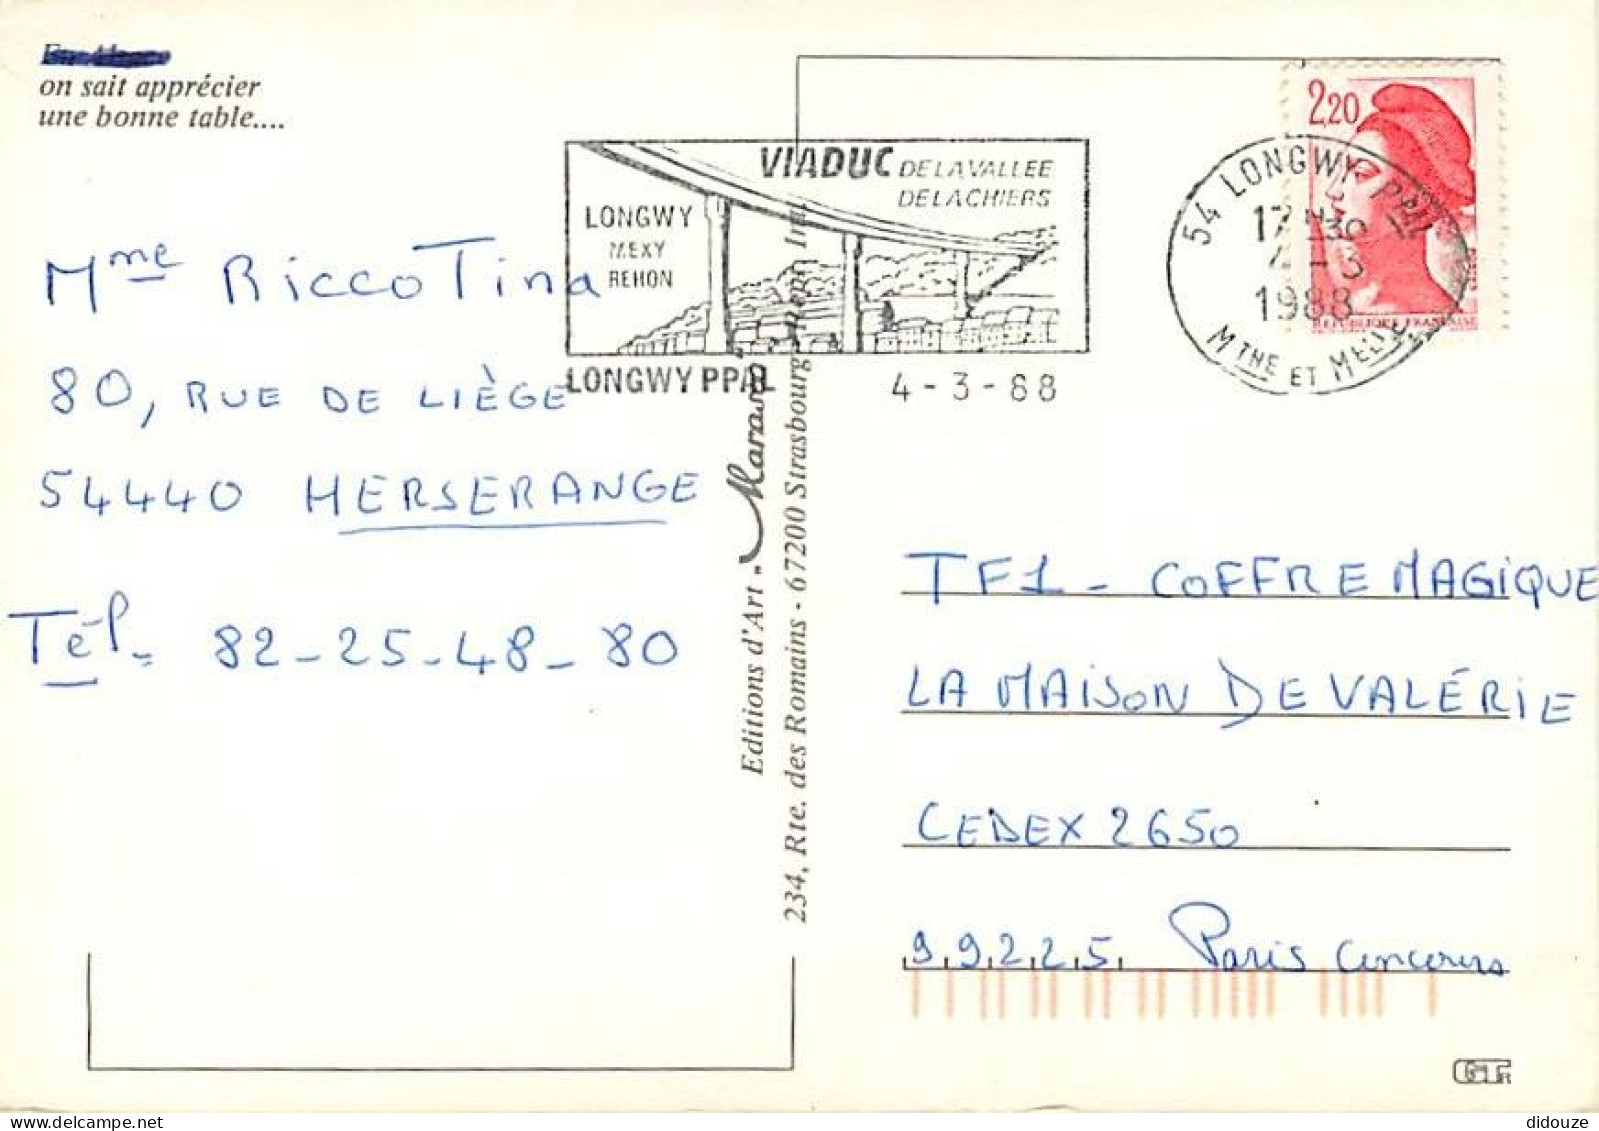 on sait apprécier
une bonne table....
VIADUC DE LA VALLEE
DE LA CHIERS
LONGWY
MEXY
REHON
LONGWY PPAL
4-3-88
2,20
REPUBLIQUE FRANÇAISE
54 LONGWY PPAL
17H30
4-3
1988
MTHE ET MELLE
Mme RICCO Tina
80, RUE DE LIÈGE
54440 HERSERANGE
Tél. 82-25-48-80
Editions d'Art -
234, Rte. des Romains - 67200 Strasbourg
TF1 - COFFRE MAGIQUE
LA MAISON DE VALÉRIE
CEDEX 2650
99225 Paris Concours
didouze